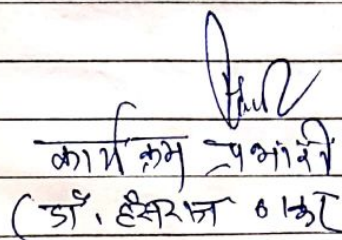 कार्यक्रम प्रभारी
(डॉ. हंसराज ठाकुर